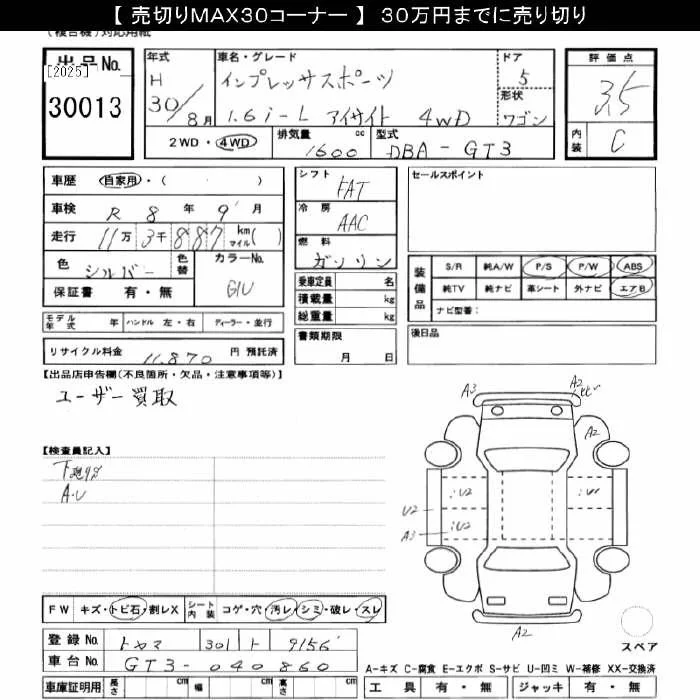 【 売切りMAX30コーナー 】 30万円までに売り切り
(複合機) 対応用紙
出品No. [2025] 30013
年式 H 30/8月
車名・グレード インプレッサスポーツ 1.6i-L アイサイト 4WD
ドア 5
形状 ワゴン
評価点 3.5
内装 C
2WD・4WD 排気量 1600 cc 型式 DBA-GT3
車歴 自家用・( )
車検 R 8 年 9 月
走行 11万3千887 km マイル( )
色 シルバー 色替 カラーNo. G1U
保証書 有・無
シフト FAT
冷房 AAC
燃料 ガソリン
乗車定員 名
積載量 kg
総重量 kg
書類期限 月 日
セールスポイント
装備品 S/R 純A/W P/S P/W ABS
純TV 純ナビ 革シート 外ナビ エアB
ナビ型番:
後日品
モデル年式 年 ハンドル 左・右 ディーラー・並行
リサイクル料金 11,870 円 預託済
【出品店申告欄(不良箇所・欠品・注意事項等)】
ユーザー買取
【検査員記入】
A・U
A3 A2
A2
U2 U2
U2
A3
A2
スペア
FW キズ・トビ石・割レX シート内装 コゲ・穴・汚レ・シミ・破レ・スレ
登録No. トヤマ 301 ト 9156
車台No. GT3-040860
車庫証明用 長さ cm 幅 cm 高さ cm
A-キズ C-腐食 E-エクボ S-サビ U-凹ミ W-補修 XX-交換済
工具 有・無 ジャッキ 有・無